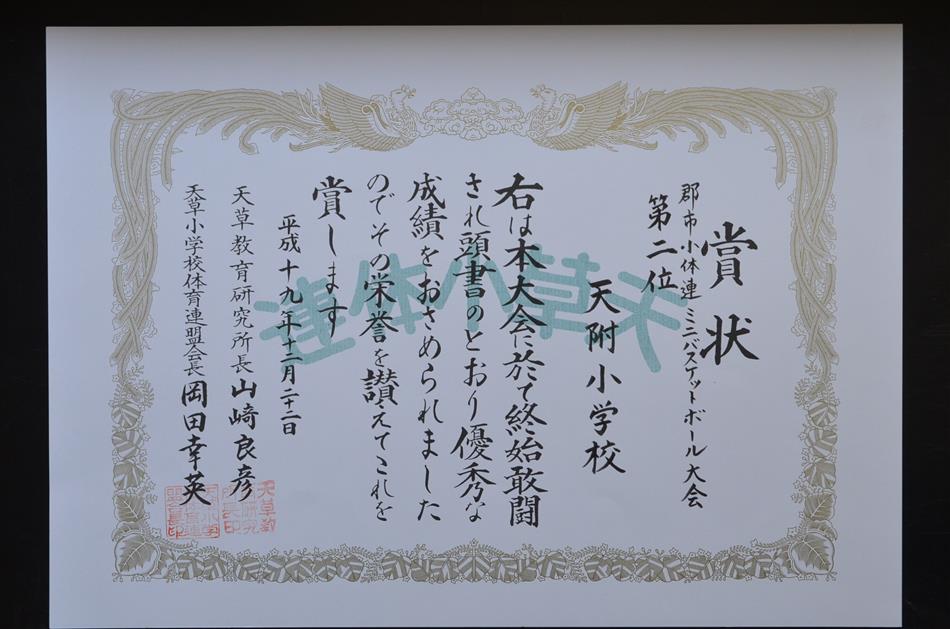 賞状
郡市小体連ミニバスケットボール大会
第二位
天附小学校
右は本大会に於て終始敢闘
され頭書のとおり優秀な
成績をおさめられました
のでその栄誉を讃えてこれを
賞します
平成十九年十二月二十二日
天草教育研究所長 山﨑良彦
天草小学校体育連盟会長 岡田幸英
天草小体連